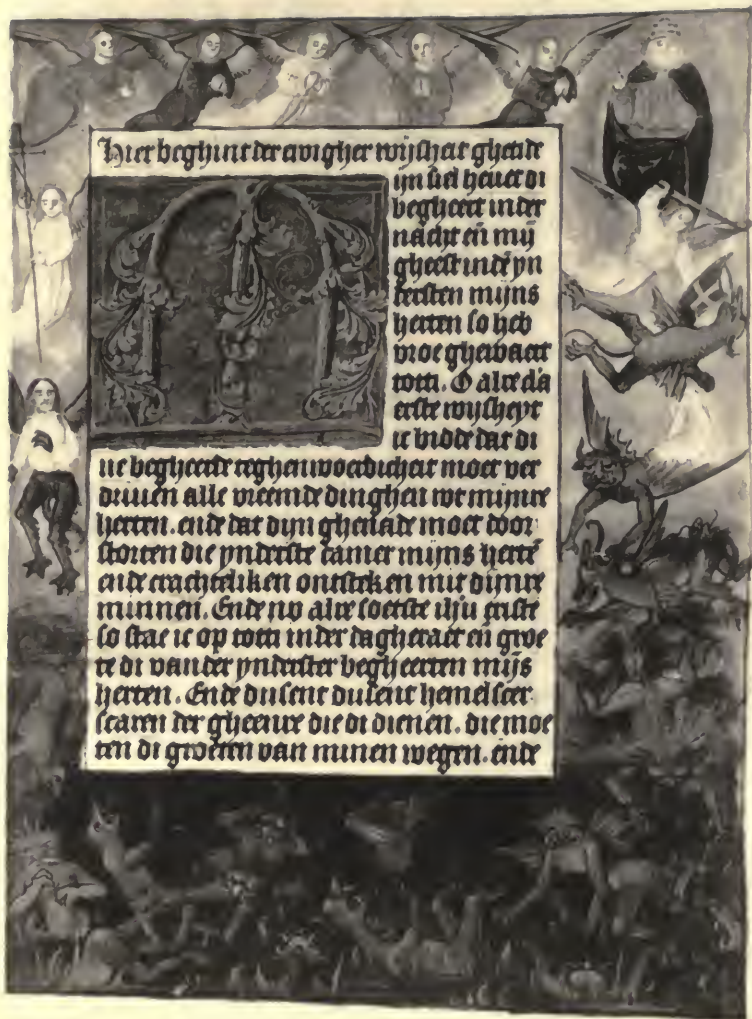 Hier beghint der ewigher wijsheit ghetide
M
ijn siel hevet di
begheert inder
nacht en̄ mijn
gheest inde yn
tersten mijns
herten so heb
vroe ghewaect
totti. O alre cla
erste wijsheyt
ic bidde dat di
ne begheerde teghenwoerdicheit moet ver
driven alle vreemde dinghen wt mijnre
herten. ende dat dijn ghenade moet door
storten die ynderste camer mijns hertē
ende crachteliken ontsteken mit dijnre
minnen. Ende nv alre soetste ihū criste
so stae ic op totti inder dagheraet en̄ groe
te di van der ynderster begheerten mijs
herten. Ende dusent dusent hemelscer
scaren der gheenre die di dienen. die moe
ten di groeten van minen wegen. ende